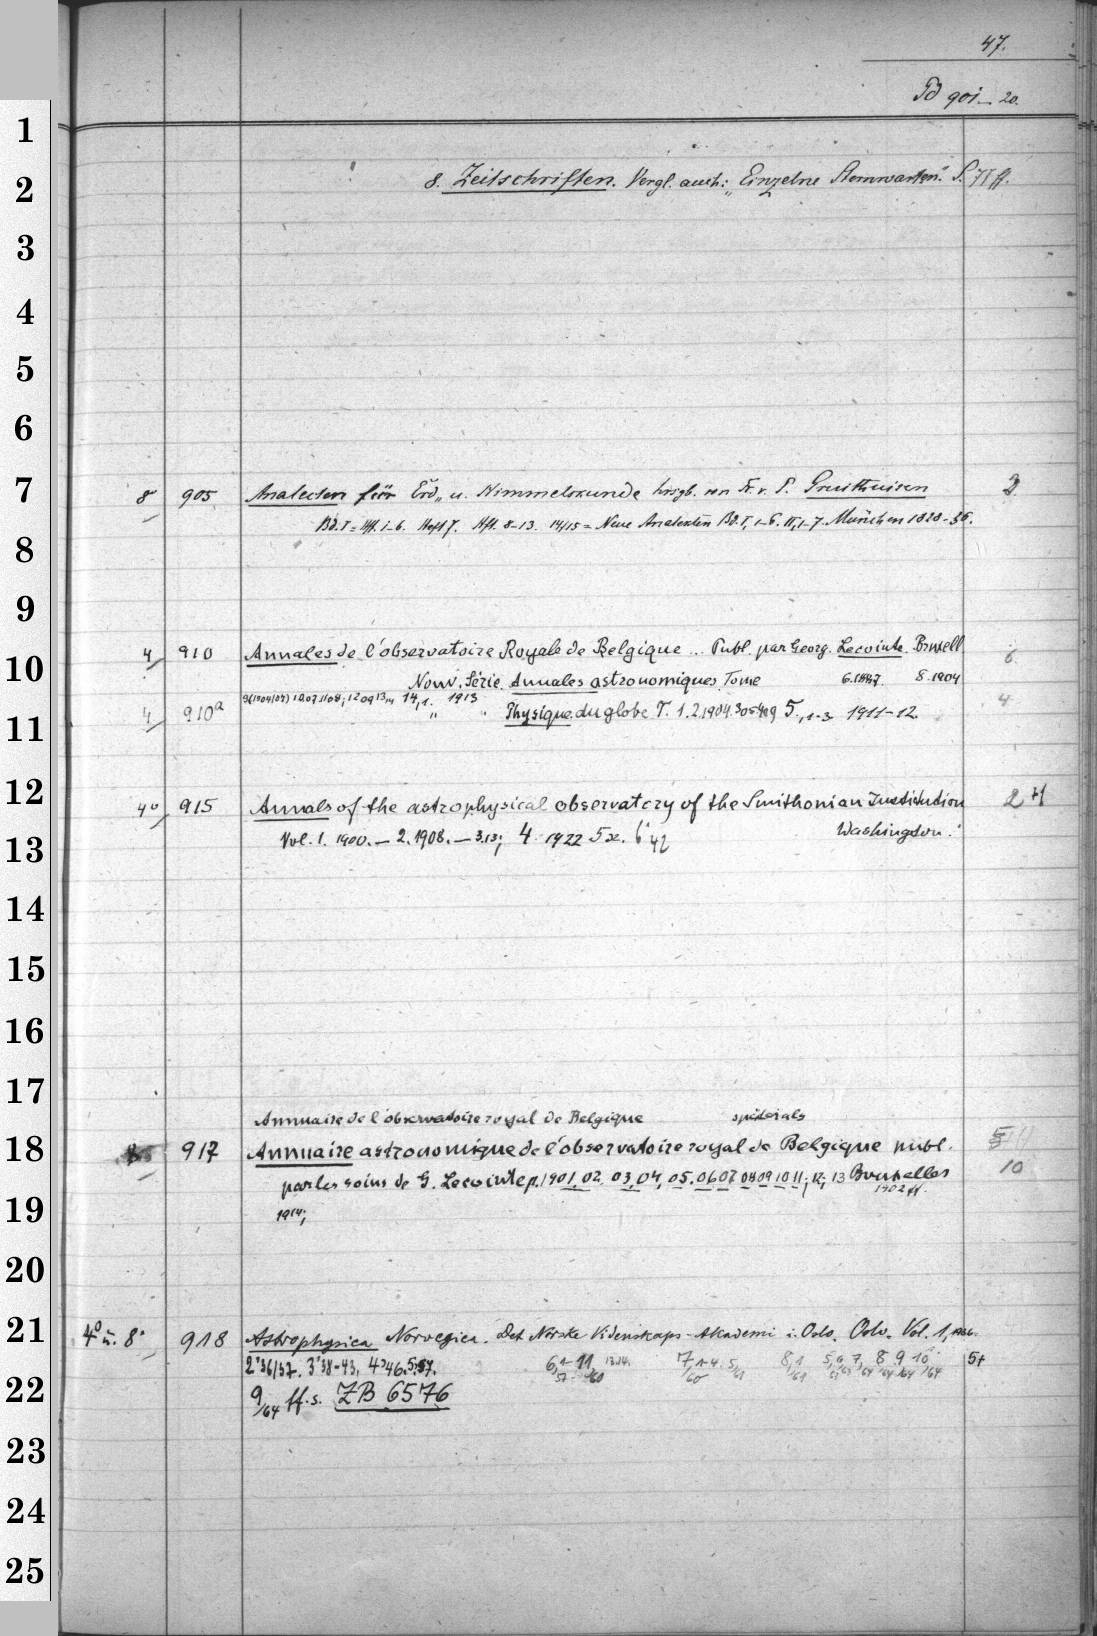 47.
Pd 901–20.
1
2
8. Zeitschriften. Vergl. auch: „Einzelne Sternwarten." S. 71 ff.
3
4
5
6
7
8 905 Analecten für Erd„ u. Himmelskunde hrsgb. von Fr. v. P. Gruithuisen 2
Bd. I = Hft. 1–6. Heft 7. Hft. 8–13. 14/15 = Neue Analekten Bd. I, 1–6. II, 1–7. München 1828–36.
8
9
10
4 910 Annales de l'observatoire Royale de Belgique ... Publ. par Georg. Lecointe. Bruxell 6
Nouv. Série. Annales astronomiques. Tome 8. 1904
11
4 910a 14,1. 1913 „ „ Physique du globe T. 1.2.1904. 5,1-3 1911–12. 4
12
4° 915 Annals of the astrophysical observatory of the Smithonian Institution 2 H
13
Vol. 1. 1900. — 2. 1908. — 3.13; 4. 1922 5 6 42 Washington.
14
15
16
17
Annuaire de l'observatoire royal de Belgique
18
917 Annuaire astronomique de l'observatoire royal de Belgique publ. 5
par les soins de G. Lecointe p. 1901, 02, 03, 04, 05. 06 07 08 09 10 11; 12; 13 Bruxelles 10
1902 ff.
19
1914;
20
21
4° u. 8° 918 Astrophysica Norvegica. Det Norske Videnskaps-Akademi i Oslo. Oslo. Vol. 1,
2'36/37. 3'38–43. 6,1–11, 13.14. 7,1-4. 5, 8,1 8 9 10 5+
22
9/64 ff. s. ZB 6576
23
24
25